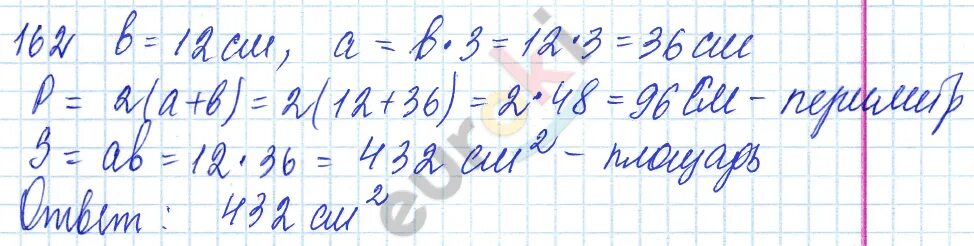 162 b = 12 см, a = b · 3 = 12 · 3 = 36 см
P = 2(a+b) = 2(12+36) = 2 · 48 = 96 см - периметр
S = ab = 12 · 36 = 432 см² - площадь
Ответ: 432 см²
euroki